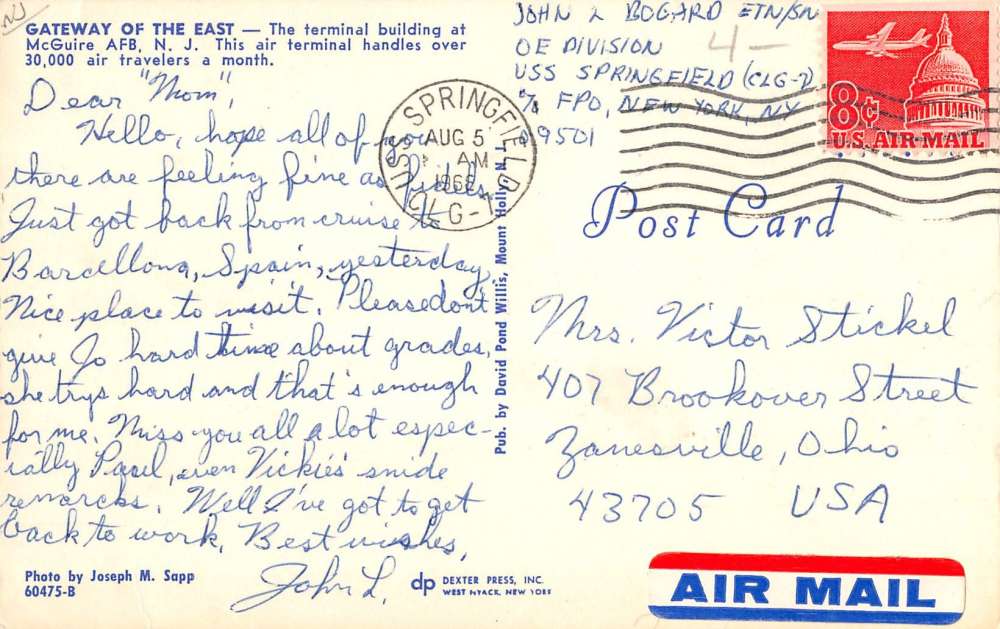 NJ
GATEWAY OF THE EAST — The terminal building at
McGuire AFB, N. J. This air terminal handles over
30,000 air travelers a month.
Dear "Mom",
Hello, hope all of you
there are feeling fine as
Just got back from cruise to
Barcellona, Spain, yesterday.
Nice place to visit. Please don't
give Jo hard time about grades,
she trys hard and that's enough
for me. Miss you all a lot espec-
ially Paul, even Vickie's snide
remarcks. Well I've got to get
back to work. Best wishes,
John L.
Photo by Joseph M. Sapp
60475-B
dp DEXTER PRESS, INC.
WEST NYACK, NEW YORK
Pub. by David Pond Willis, Mount Holly, N. J.
USS SPRINGFIELD
AUG 5
AM
CLG-7
JOHN L BOGARD ETN/SN
OE DIVISION
USS SPRINGFIELD (CLG-7)
% FPO, NEW YORK, NY
09501
4-
8¢
U.S. AIR MAIL
Post Card
Mrs. Victor Stickel
407 Brookover Street
Zanesville, Ohio
43705 USA
AIR MAIL